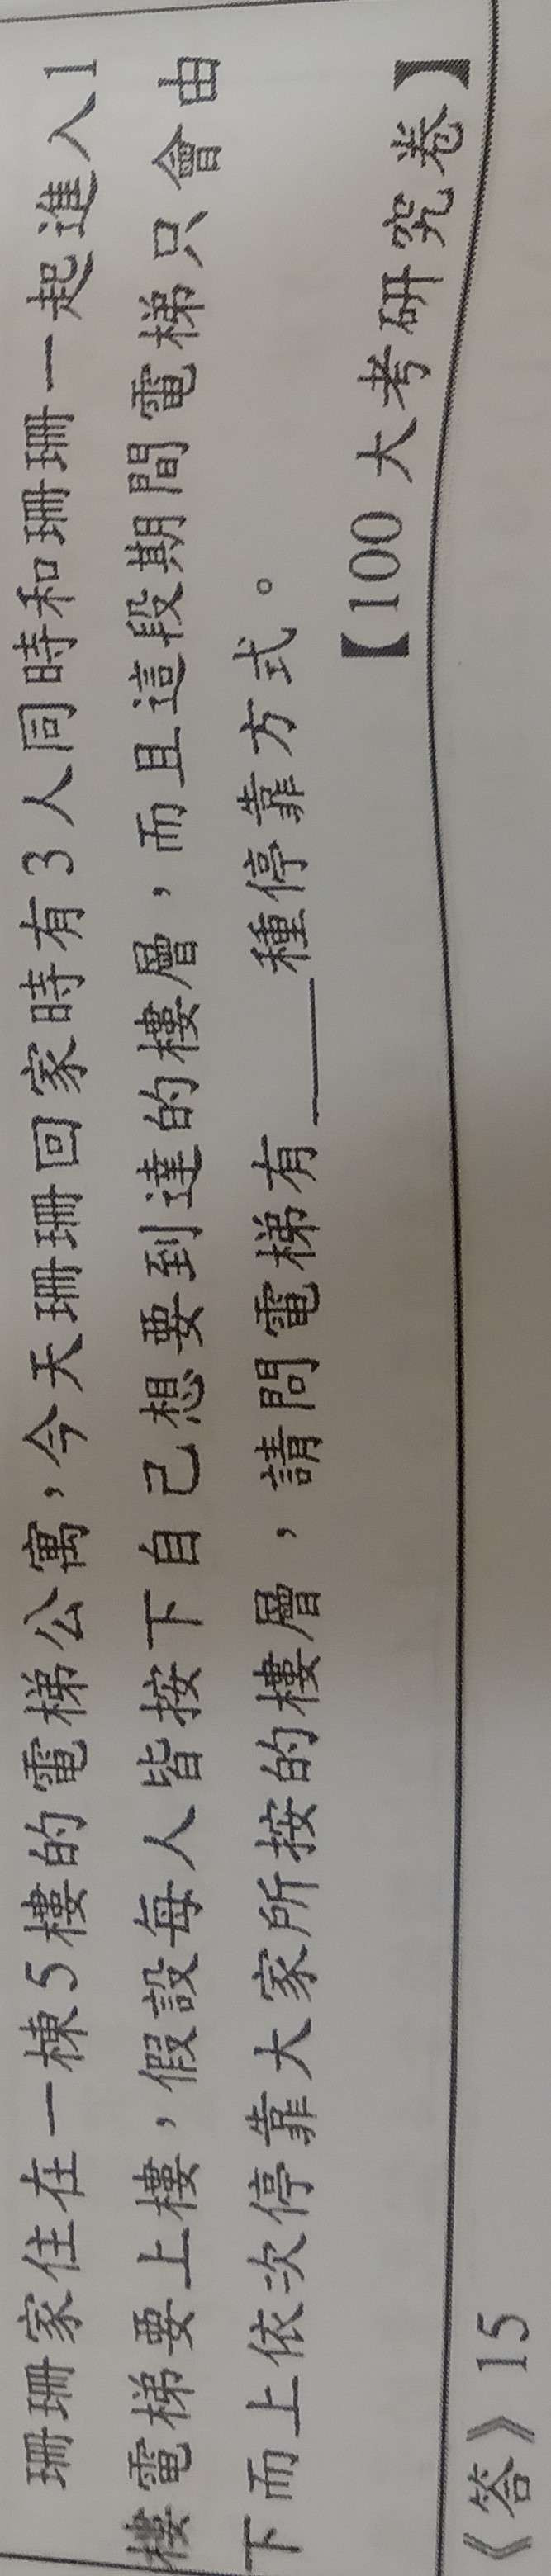 珊珊家住在一棟5樓的電梯公寓，今天珊珊回家時有3人同時和珊珊一起進入1
樓電梯要上樓，假設每人皆按下自己想要到達的樓層，而且這段期間電梯只會由
下而上依次停靠大家所按的樓層，請問電梯有____種停靠方式。
【100大考研究卷】
《答》15